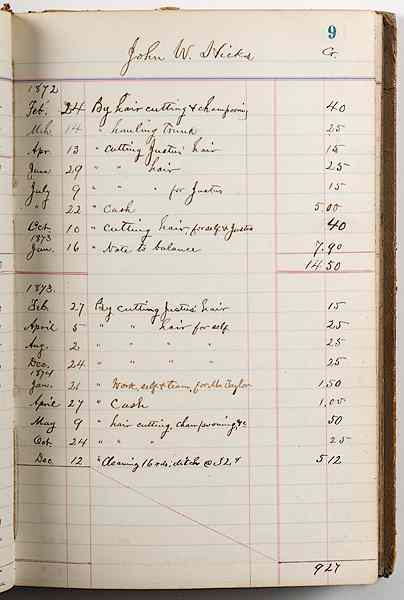 9
John W. Hicks Cr.
1872
Feb. 24 By hair cutting & champooning 40
Mch. 14 " hauling Trunk 25
Apr. 13 " cutting Justus' hair 15
June 29 " " hair 25
July 9 " " " for Justus 15
" 22 " Cash 5.00
Oct. 10 " cutting hair, for self & Justus 40
1873
Jan. 16 " Note to balance 7.90
14 50
1873.
Feb. 27 By cutting Justus' hair 15
April 5 " " hair for self 25
Aug. 2 " " " " 25
Dec. 24 " " " " 25
1874
Jan. 21 " Work, self & team, for Mr. Taylor 1.50
April 27 " Cash 1.00
May 9 " hair cutting, champooning, &c 50
Oct. 24 " " " 25
Dec 12 " Cleaning 16 rds. ditch @ 32 ¢ 5 12
9 27